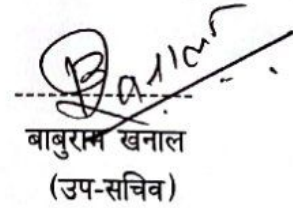 बाबुराम खनाल
(उप-सचिव)